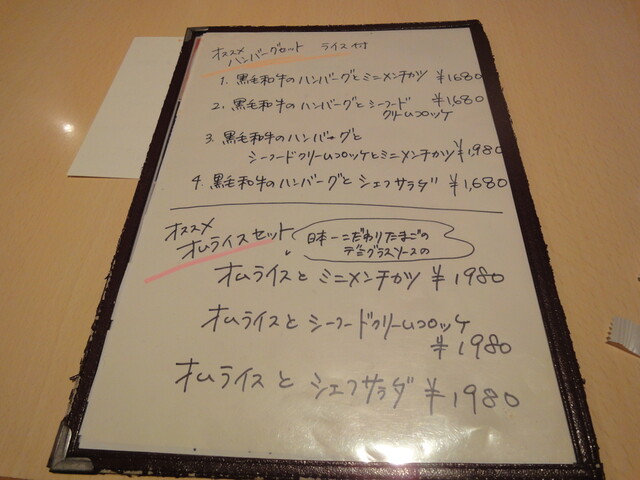 オススメ
ハンバーグセット ライス付
1. 黒毛和牛のハンバーグとミニメンチカツ ¥1680
2. 黒毛和牛のハンバーグとシーフード ¥1,680
クリームコロッケ
3. 黒毛和牛のハンバーグと
シーフードクリームコロッケとミニメンチカツ ¥1,980
4. 黒毛和牛のハンバーグとシェフサラダ ¥1,680
オススメ
オムライスセット
日本一こだわりたまごの
デミグラスソースの
オムライスとミニメンチカツ ¥1980
オムライスとシーフードクリームコロッケ
¥1980
オムライスとシェフサラダ ¥1980